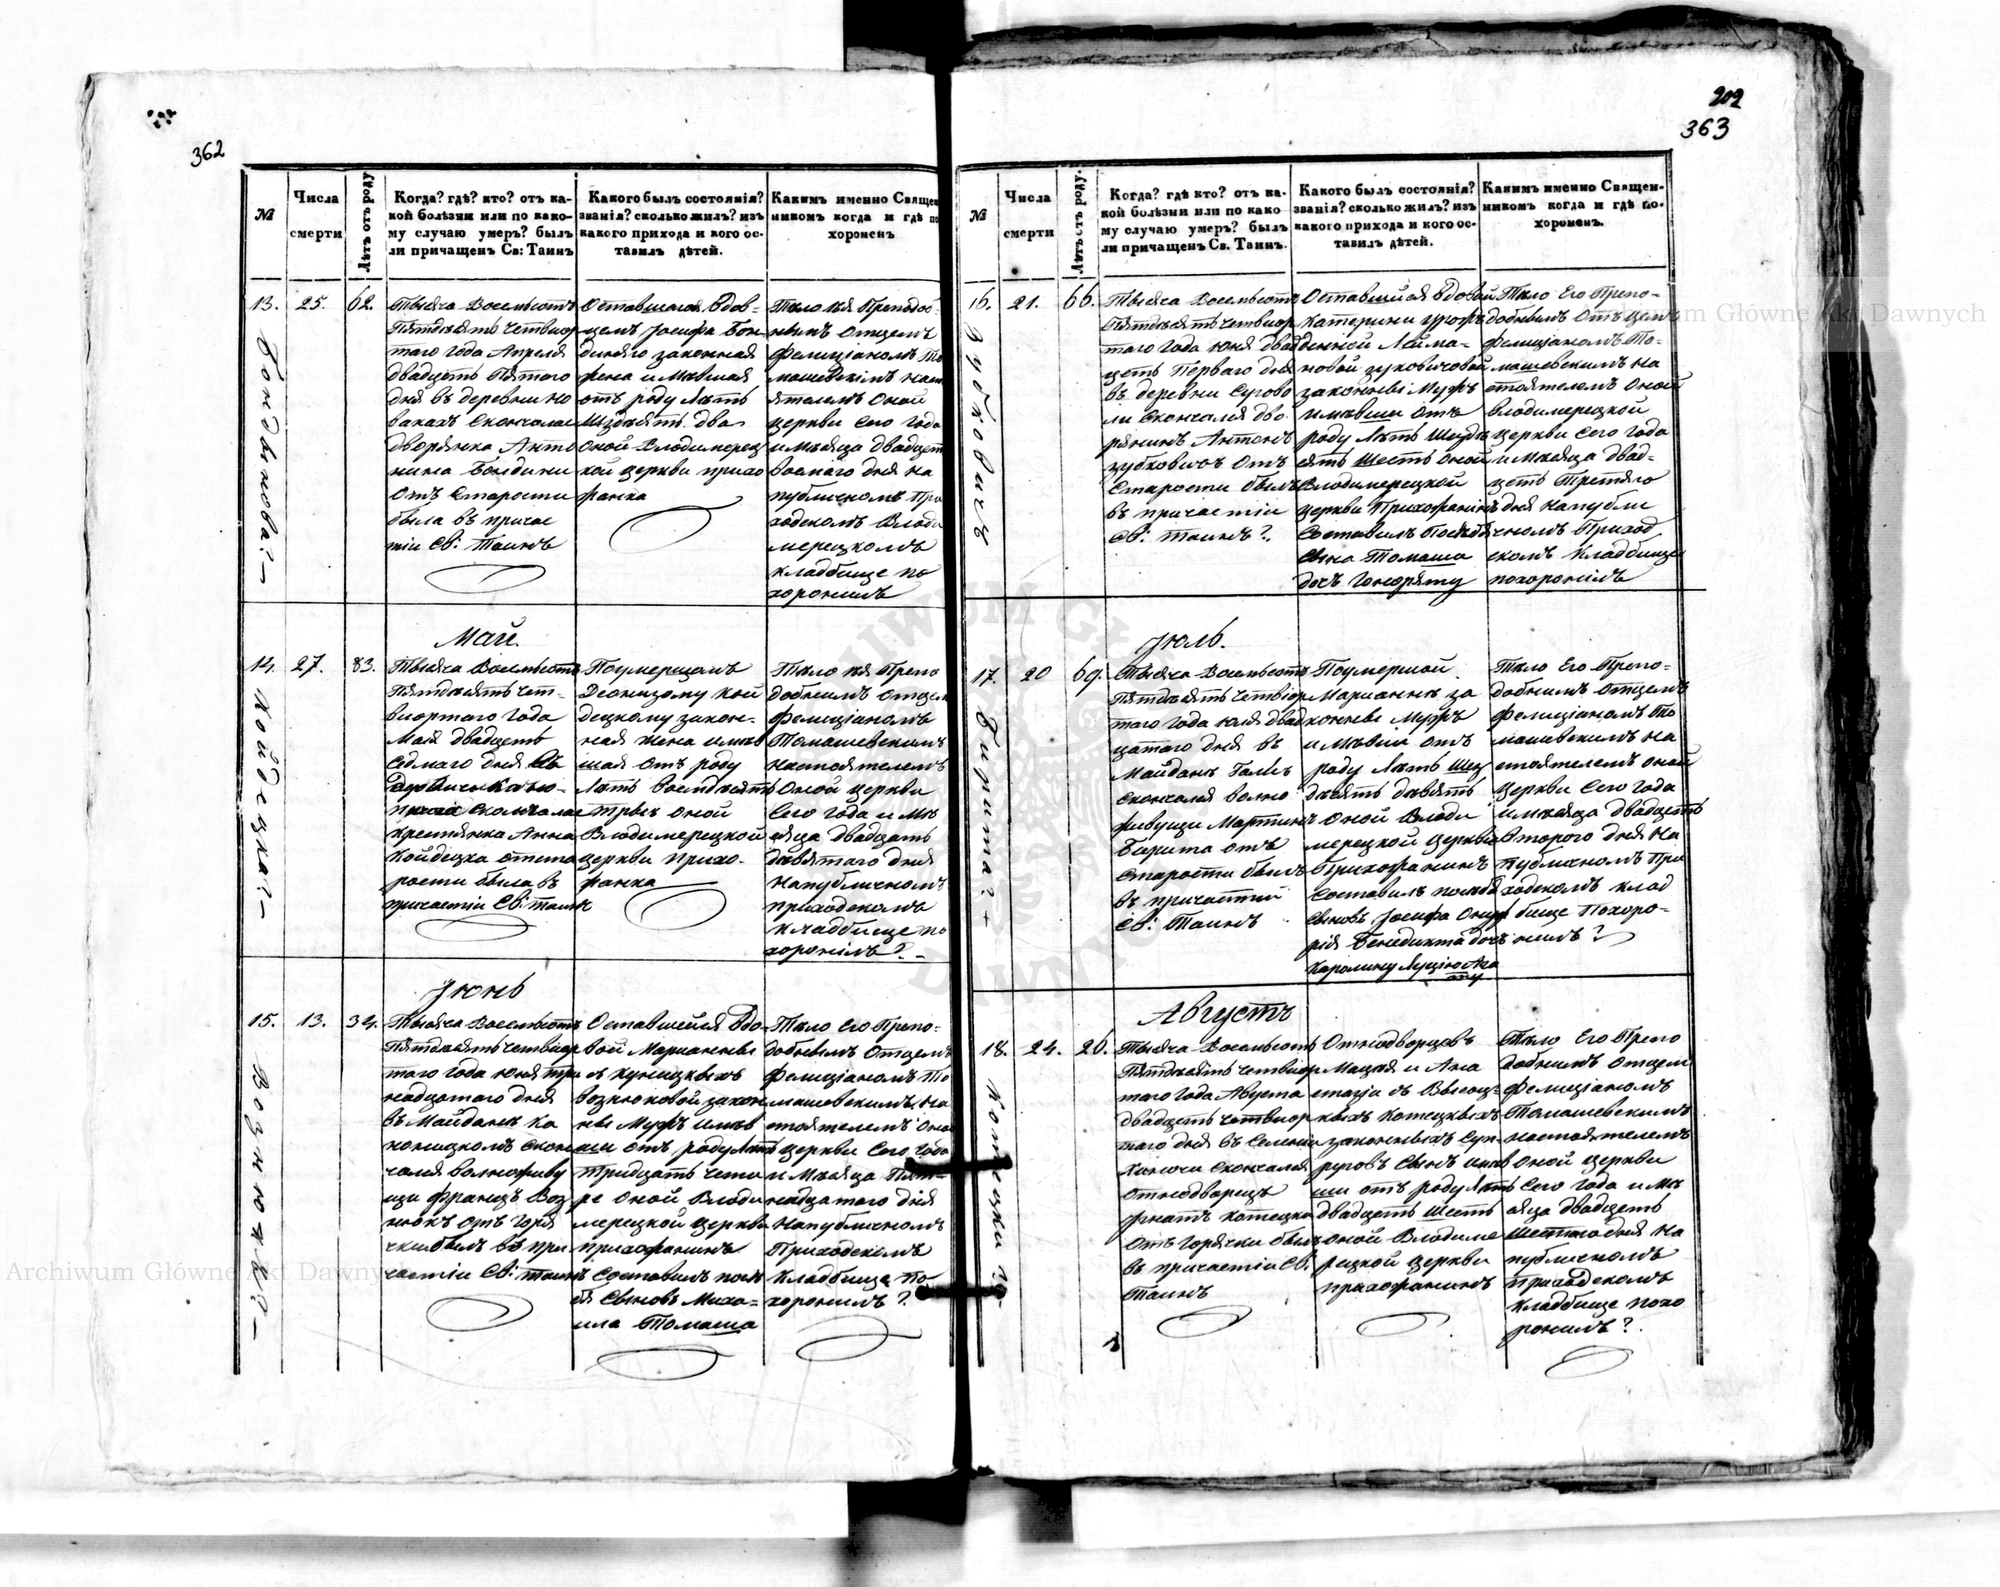 362
№
Числа
смерти
Лѣтъ отъ роду
Когда? гдѣ? кто? отъ ка-
кой болѣзни или по како-
му случаю умеръ? былъ
ли причащенъ Св: Таинъ
Какого былъ состоянія?
званія? сколько жилъ? изъ
какого прихода и кого ос-
тавилъ дѣтей.
Какимъ именно Священ
никомъ когда и гдѣ по
хороненъ
13.
25.
62.
Тысяча Восемьсотъ
Пятдесятъ Четвиор
таго года Апреля
двадцать Пятого
дня въ деревни Но
вакахъ Скончалас
дворянка Анто
нина Бондини
Отъ Старости
была въ причас
тіи Св: Таинъ
Оставшагося Вдов-
цемъ Іосифа Бон-
законная
жена имѣвшая
отъ роду Лѣтъ
два
Оной Влодимерец
кой церкви прихо
жанка
Тѣло ея Преподоб-
нымъ Отцемъ
Фелиціаномъ То
машевскімъ Нас
ятелемъ Оной
церкви Сего Года
и Мѣсяца двадцат
восмаго дня на
публичномъ При
ходскомъ Влоди
мерецкомъ
кладбище по
хоронилъ
Май.
14.
27.
83.
Койдецка?
Тысяча Восемьсотъ
Пятдесятъ чет-
виортаго Года
Мая двадцать
Седмаго дня
Скончалас
крестянка Анна
Койдецка отста
рости была въ
причастіи Св: таинъ
Поумерщомъ
Деонизому Кой
децкому закон-
ная жена имѣв
шая отъ роду
Лѣтъ восемдесятъ
три оной
Влодимерецкой
церкви прихо-
жанка
Тѣло ея Препо
добнимъ Отцем
Фелиціаномъ
Томашевскимъ
Настоятелемъ
Оной церкви
Сего года и Мѣ
сяца двадцать
девятаго дня
напубличномъ
приходскомъ
кладбище по
хоронілъ?
Іюнь
15.
13.
34.
Вознюкъ?
Тысяча Восемьсотъ
Пятдесятъ четвиор
таго года Юня три
надцатого дня
въ Майданѣ Ка
ноницкомъ скон
чался волноживу
щи Францъ Воз
нюкъ отъ горя
чки былъ въ при
частіи Св: таинъ
Оставшейся Вдо-
вой Марианнѣ
съ Куницкихъ
Вознюковой закон
нѣ Мужъ имѣв
ши отъ роду Лѣтъ
тридцать четы
ре Оной Влоди
мерецкой церкви
прихожанинъ
Составилъ посл
ѣ Сыновъ Миха-
ила Томаша
Тѣло Его Препо-
добнымъ Отцемъ
Фелиціаномъ То
машевскимъ На
стоятелемъ Оной
церкви Сего Года
и Мѣсяца Пят-
надцатого дня
Напубличномъ
Приходскомъ
кладбище по
хоронилъ?
202
363
№
Числа
смерти
Лѣтъ отъ роду.
Когда? гдѣ кто? отъ ка-
кой болѣзни или по како
му случаю умеръ? былъ
ли причащенъ Св. Таинъ.
Какого былъ состоянія?
званія? сколько жилъ? изъ
какого прихода и кого ос-
тавилъ дѣтей.
Какимъ именно Священ-
никомъ когда и гдѣ по-
хороненъ.
16.
21.
66.
Зубковичъ
Тысяча Восемьсотъ
Пятдесятъ Четвиор
таго года Юня двад
цеть Перваго дня
въ деревни Сугово
ли Скончался дво
рянинъ Антонъ
Зубковичъ Отъ
Старости былъ
въ причастіи
Св: таинъ?
Оставшийся вдовой
Катерини
законнѣ Мужъ
имѣвши отъ
роду Лѣтъ
Шесть оной
Влодимерецкой
церкви Прихожанинъ
Составилъ
Сына Томаша
дочъ Гонорату
Тѣло Его Препо-
добнимъ Отъцем
Фелиціаномъ То-
машевскимъ на
стоятелемъ Оной
влодимерецкой
церкви Сего Года
и Мѣсяца двад-
цеть Третяго
дня Напубли
чномъ Приход
скомъ Кладбище
похоронілъ
Іюль.
17.
20
69.
Бирита?
Тысяча Восемьсотъ
Пятдесятъ Четвіор
таго года Юля двад
цатаго дня въ
Майданѣ Галѣ
Скончался волно
живущи Мартинъ
Бирита отъ
Старости былъ
въ причастии
Св: Таинъ
Поумершой
Марианнѣ за
коннѣ Мужъ
имѣвши отъ
роду Лѣтъ Шез
десятъ девять
Оной Влоди
мерецкой церкви
Прихожанинъ
Составилъ
Сыновъ Іосифа Ониф
рія Бенедикта дочъ
Каролину Луцию
Тѣло Его Препо-
добнимъ отцемъ
Фелиціаномъ То
машевскимъ на
стоятелемъ оной
Церкви Сего года
и мѣсяца двадцать
Второго дня на
публичномъ при
ходскомъ клад
бище Похоро-
нилъ?
Августъ
18.
24.
26.
Котецки?
Тысяча Восемьсотъ
Пятдесятъ четвиор
таго года Августа
двадцеть четвиор
таго дня въ Селении
Хиночи Скончался
Отнодворецъ
Игнатъ Котецки
Отъ Горячки былъ
въ причастіи Св:
Таинъ
Отнодворцевъ
Мацея и Ана
стазіи съ Высоц-
кихъ Котецкихъ
законныхъ Суп-
руговъ Сынъ имѣв
ши отъ роду лѣтъ
двадцеть Шесть
оной Влодиме
рецкой Церкви
прихожанинъ
Тѣло Его Препо
добнимъ Отцем
Фелиціаномъ
Томашевскимъ
настоятелемъ
Оной церкви
Сего года и Мѣ
сяца двадцеть
Шестого дня на
публичномъ
приходскомъ
кладбище похо
ронилъ?
Archiwum Główne Akt Dawnych